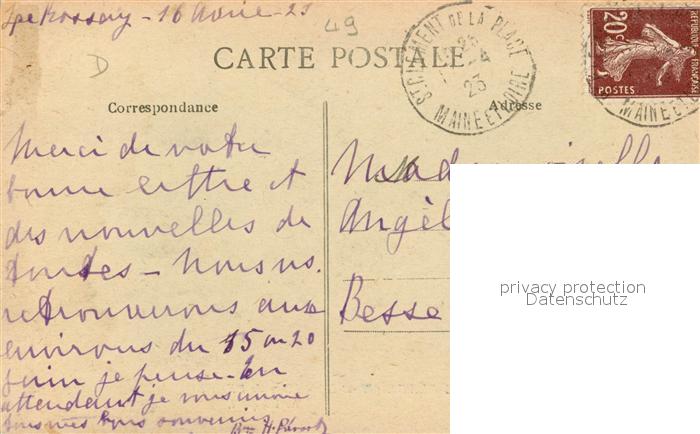 16 Avril - 23
49
D
CARTE POSTALE
ST CLÉMENT DE LA PLACE
23
MAINE ET LOIRE
20c
REPUBLIQUE FRANÇAISE
POSTES
MAINE ET LOIRE
Correspondance
Adresse
Merci de votre
bonne lettre et
des nouvelles de
toutes - Nous ns.
retrouverons aux
environs du 15 ou 20
juin je pense - En
attendant je vous envoie
tous mes bons souvenirs
Mademoiselle
Angèl
Besse
privacy protection
Datenschutz